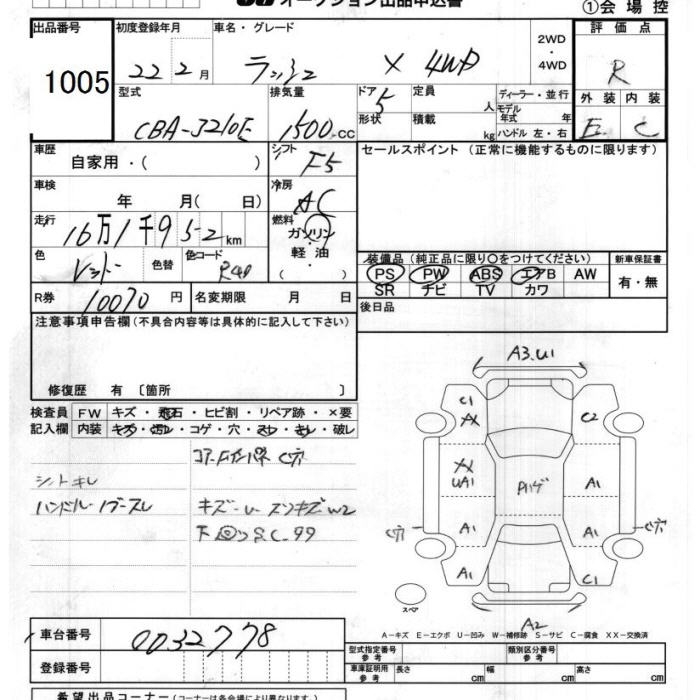 オークション出品申込書
①会場控
出品番号 初度登録年月 車名・グレード 評価点
1005 22年2月 ラッシュ X 4WD 2WD・4WD R
型式 排気量 ドア 定員 ディーラー・並行 外装 内装
CBA-J210E 1500 CC 5 人 モデル年式 年 E C
形状 積載 kg ハンドル 左・右
車歴 シフト セールスポイント (正常に機能するものに限ります)
自家用・( ) F5
車検 冷房
年 月( 日) AC
走行 燃料
16万1千952km ガソリン
色 色替 色コード 軽油 装備品 (純正品に限り○をつけてください) 新車保証書
レッド R40 ( ) PS PW ABS エアB AW 有・無
SR ナビ TV カワ
R券 10070円 名変期限 月 日 後日品
注意事項申告欄 (不具合内容等は具体的に記入して下さい)
修復歴 有〔箇所 〕
検査員 FW キズ・飛石・ヒビ割・リペア跡・×要
記入欄 内装 キズ・汚レ・コゲ・穴・スレ・キレ・破レ
C穴
シートキレ
ハンドル・ノブスレ キズ W2
下回り S.C.99
A3.U1
C1 C2
XX
XX
UA1 Pハゲ A1
C穴 A1 A1 C穴
A1 C1
スペア
A2
A―キズ E―エクボ U―凹み W―補修跡 S―サビ C―腐食 XX―交換済
車台番号 0032778
型式指定番号 参考 類別区分番号 参考
登録番号 車庫証明用 参考 長さ cm 幅 cm 高さ cm
希望出品コーナー (コーナーは各会場により異なります)